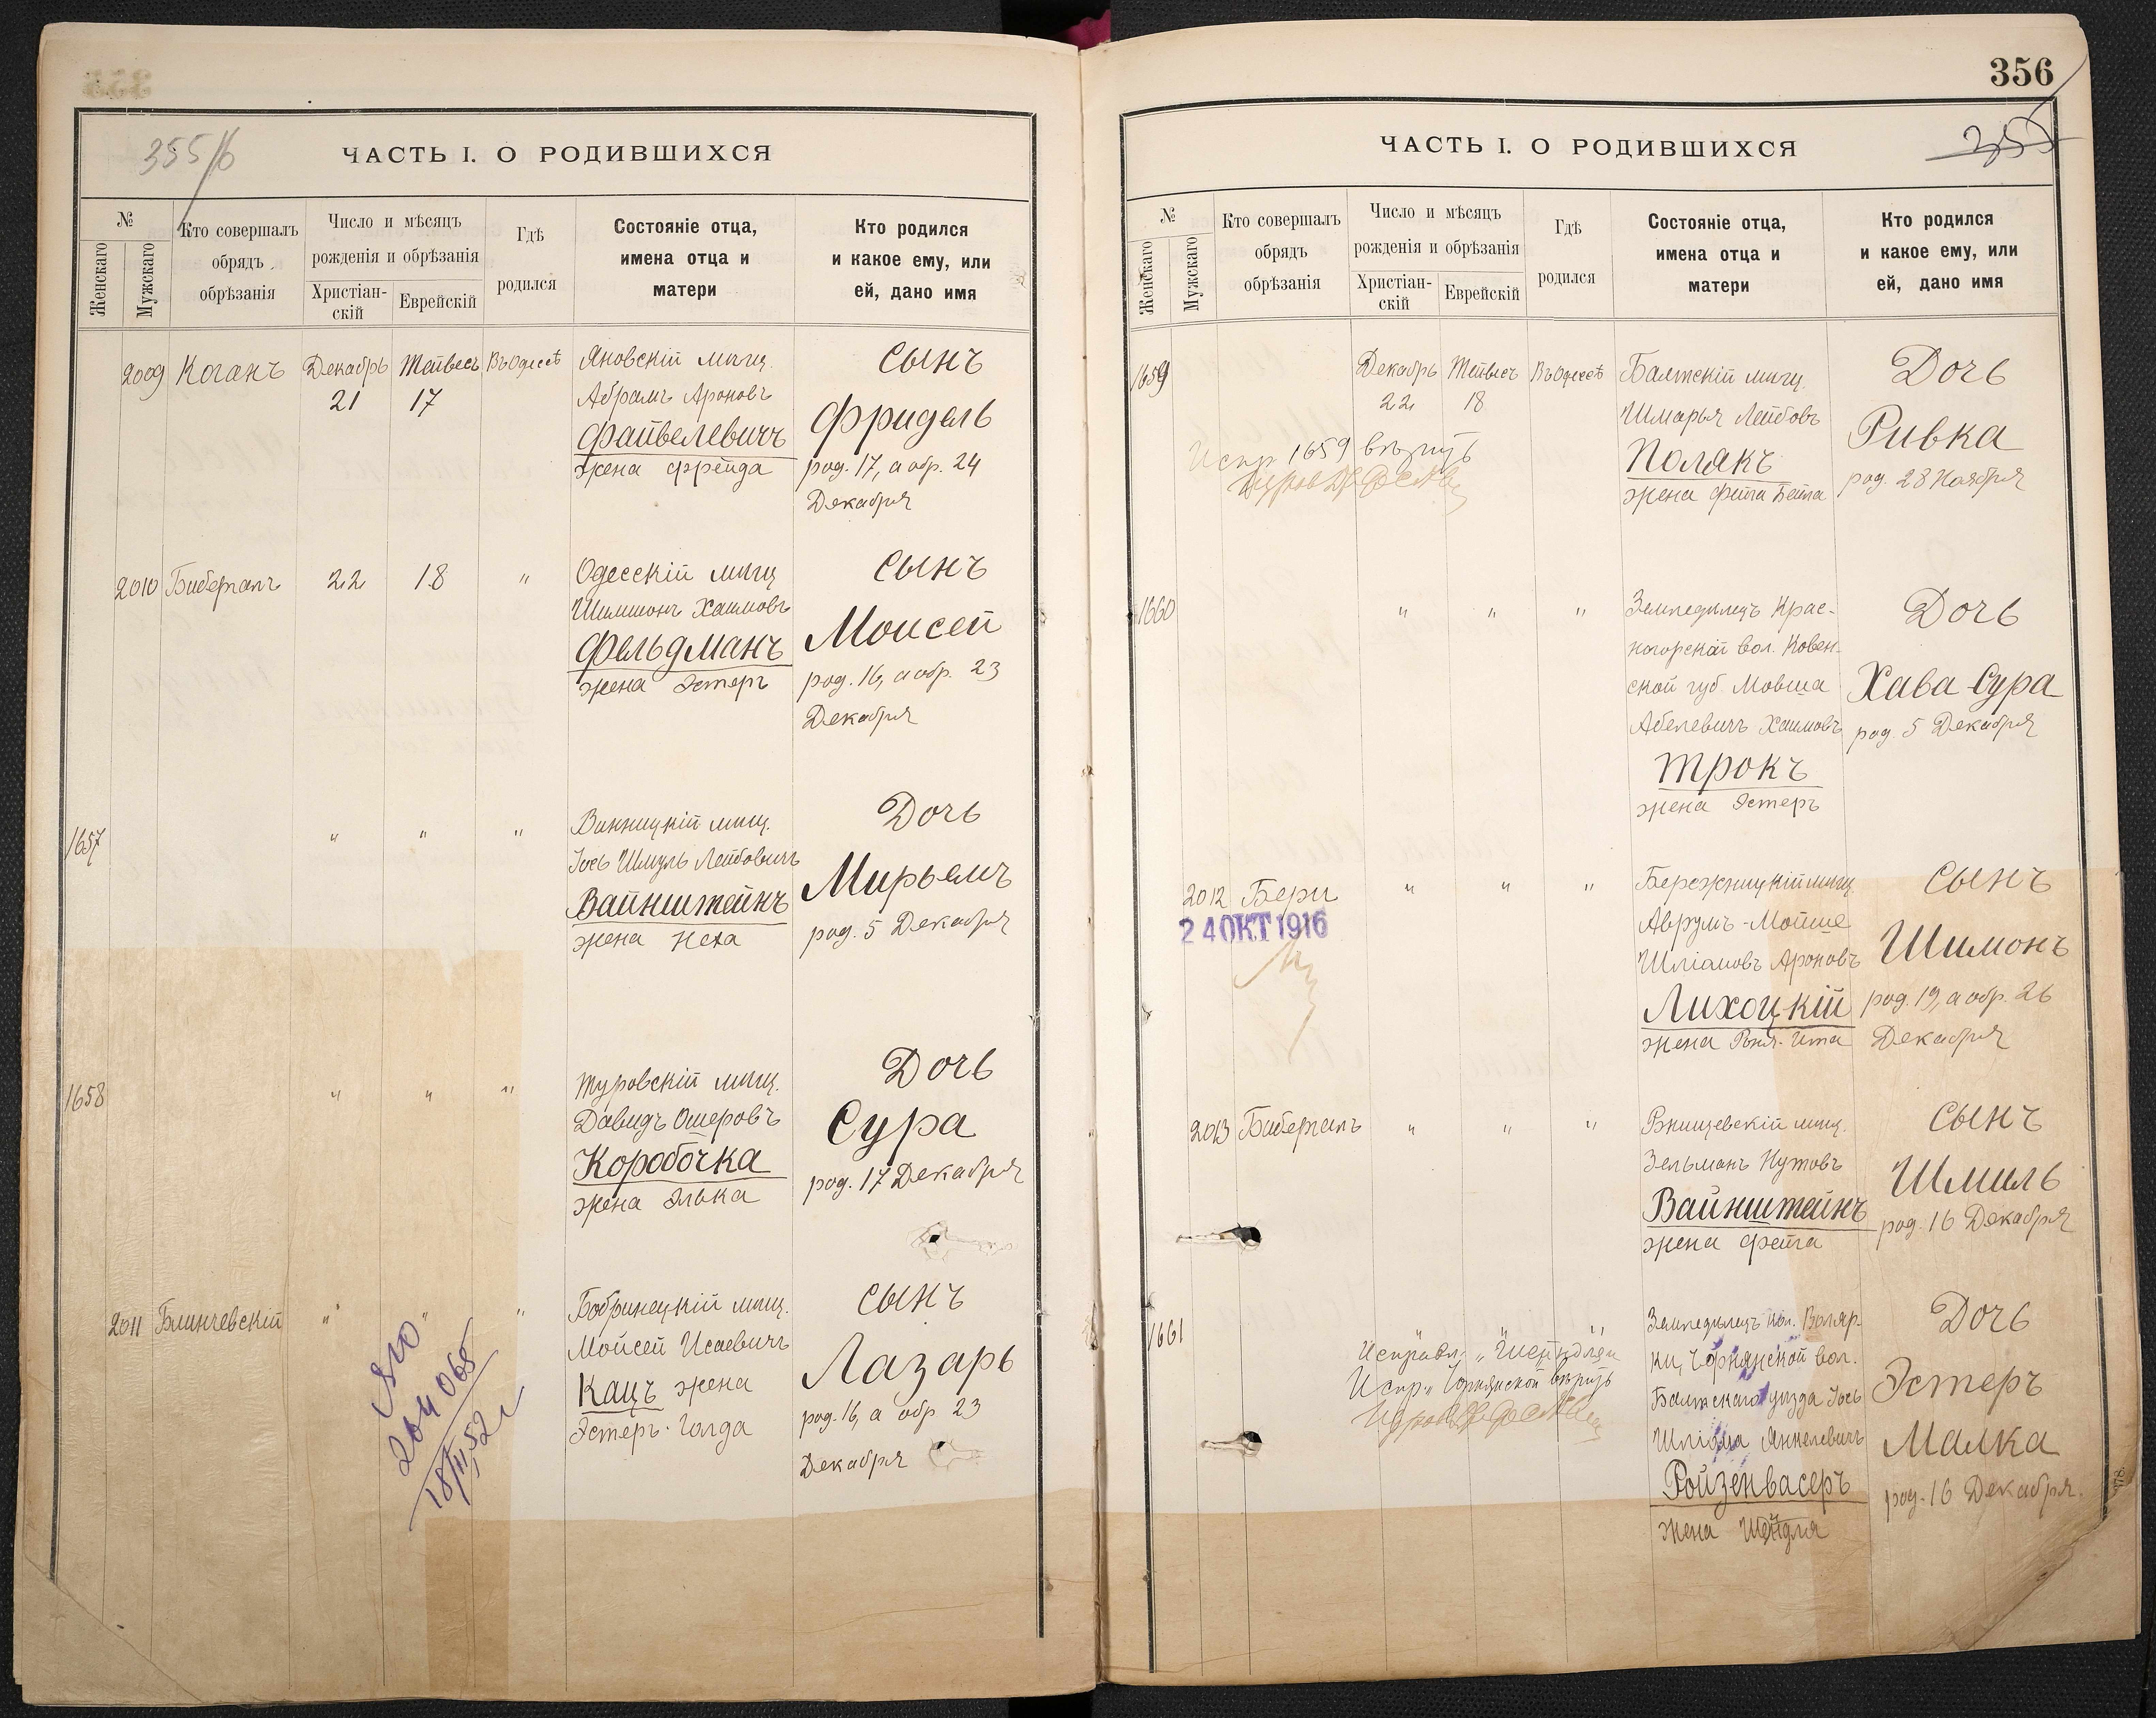 355/б
ЧАСТЬ I. О РОДИВШИХСЯ
№
Женскаго
Мужскаго
Кто совершалъ
обрядъ
обрѣзанія
Число и мѣсяцъ
рожденія и обрѣзанія
Христіан-
скій
Еврейскій
Гдѣ
родился
Состояніе отца,
имена отца и
матери
Кто родился
и какое ему, или
ей, дано имя
2009 Коганъ Декабрь Тейвесъ Въ Одессѣ
21 17
Яновскій мѣщ.
Абрамъ Ароновъ
Файвелевичъ
жена Фрейда
Сынъ
Фридель
род. 17, а обр. 24
Декабря
2010 Биберталъ 22 18 "
Одесскій мѣщ
Шимшонъ Хаимовъ
Фельдманъ
жена Эстеръ
Сынъ
Моисей
род. 16, а обр. 23
Декабря
1657 " " "
Винницкій мѣщ.
Іось Шмуль Лейбовичъ
Вайнштейнъ
жена Неха
Дочь
Мирьемъ
род. 5 Декабря
1658 " " "
Туровскій мѣщ.
Давидъ Ошеровъ
Коробочка
жена Элька
Дочь
Сура
род. 17 Декабря
2011 Блинчевскій " " "
Бобринецкій мѣщ.
Мойсей Исаевичъ
Кацъ жена
Эстеръ-Голда
Сынъ
Лазарь
род. 16, а обр 23
Декабря
204065
18/III 52 г
356
355
ЧАСТЬ I. О РОДИВШИХСЯ
№
Женскаго
Мужскаго
Кто совершалъ
обрядъ
обрѣзанія
Число и мѣсяцъ
рожденія и обрѣзанія
Христіан-
скій
Еврейскій
Гдѣ
родился
Состояніе отца,
имена отца и
матери
Кто родился
и какое ему, или
ей, дано имя
1659 Декабрь Тейвесъ Въ Одессѣ
22 18
Испр 1659 вѣрить
Балтскій мѣщ.
Шмарья Лейбовъ
Полякъ
жена Фейга Бейла
Дочь
Ривка
род. 28 Ноября
1660 " " "
Земледѣлецъ Крас-
ногорской вол. Ковен-
ской губ. Мовша
Абелевичъ Хаимовъ
Трокъ
жена Эстеръ
Дочь
Хава Сура
род. 5 Декабря
2012 Бери " " "
24 ОКТ 1916
Бережницкій мѣщ.
Аврумъ-Мойше
Шліомовъ Ароновъ
Лихоцкій
жена Ита
Сынъ
Шимонъ
род. 19, а обр. 26
Декабря
2013 Биберталъ " " "
Ржищевскій мѣщ.
Зельманъ Нутовъ
Вайнштейнъ
жена Фейга
Сынъ
Шмиль
род. 16 Декабря
1661
Исправл. „Шейндля"
Испр. „Чорнянской" вѣрить
Земледѣлецъ кол. Воляр-
ки, Чорнянской вол.
Балтскаго уѣзда Іось
Шліома Янкелевичъ
Ройзенвасеръ
жена Шейндля
Дочь
Эстеръ
Малка
род. 16 Декабря.